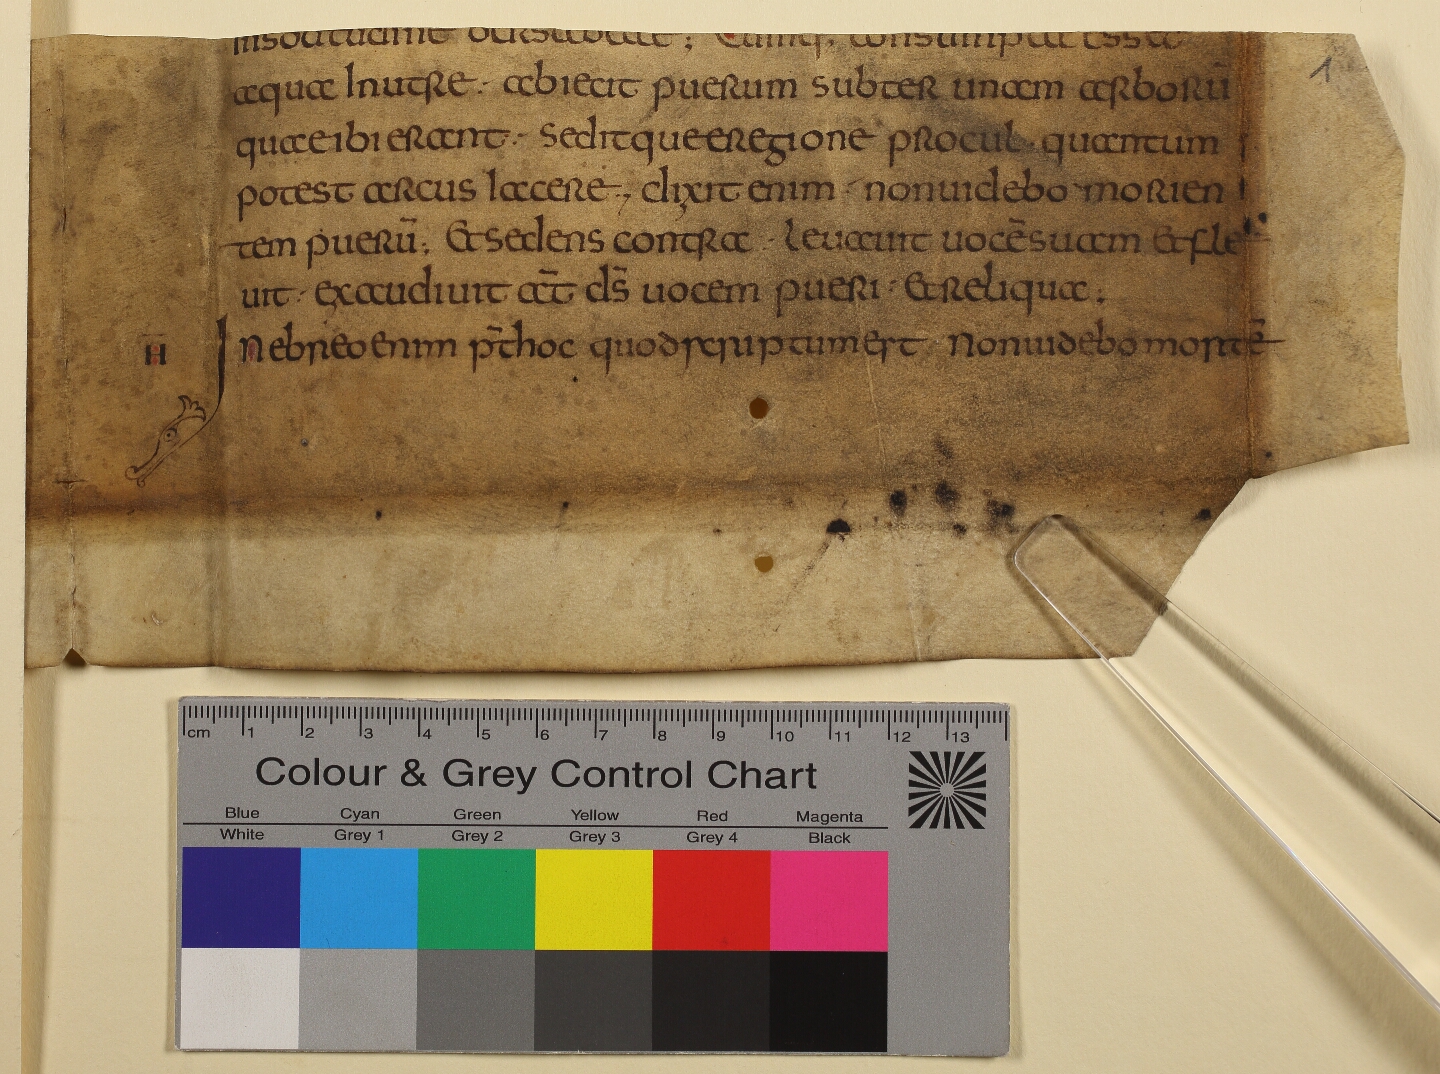 insolitudine bersabeae; Cumq; consumpta esset
aqua In utre · abiecit puerum subter unam arborū
quae ibi erant · Seditque eregione procul quantum
potest arcus lacere, dixit enim · non uidebo morien
tem puerū; Et sedens contra · leuauit uocē suam & fle
uit · exaudiuit aūt d̄s uocem pueri · & reliqua;
H In ebreo enim p̄t hoc quod scriptum est Non uidebo mortē
1
cm 1 2 3 4 5 6 7 8 9 10 11 12 13
Colour & Grey Control Chart
Blue Cyan Green Yellow Red Magenta
White Grey 1 Grey 2 Grey 3 Grey 4 Black